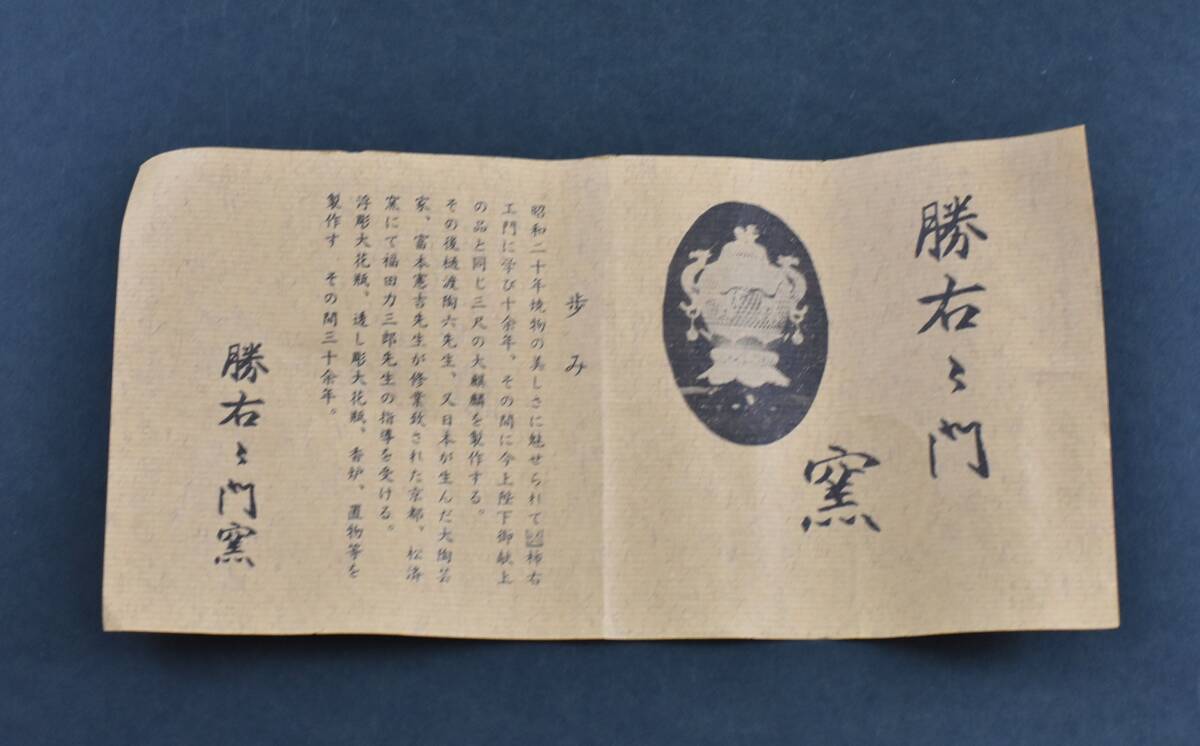 勝右ヱ門
窯
歩み
昭和二十年焼物の美しさに魅せられて 柿右
エ門に学び十余年。その間に今上陛下御献上
の品と同じ三尺の大麒麟を製作する。
その後樋渡陶六先生、又日本が生んだ大陶芸
家、富本憲吉先生が修業致された京都、松済
窯にて福田力三郎先生の指導を受ける。
浮彫大花瓶、透し彫大花瓶、香炉、置物等を
製作す その間三十余年。
勝右ヱ門窯